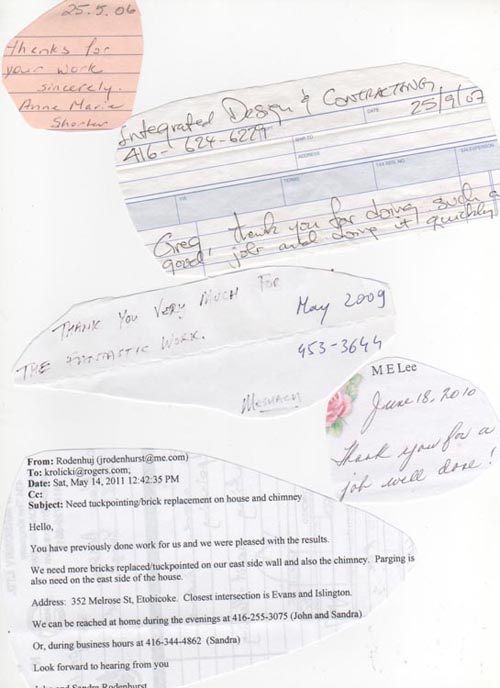 25.5.06
thanks for
your work
sincerely.
Anne Marie
Shorter
Integrated Design & CONTRACTING
416-624-6229
25/9/07
DATE
SHIP TO
ADDRESS
SALESPERSON
TERMS
TAX REG. NO.
Greg, thank you for doing such a
good job and doing it quickly
THANK YOU VERY MUCH FOR
THE FANTASTIC WORK.
May 2009
453-3644
M E Lee
June 18, 2010
Thank you for a
job well done!
From: Rodenhuj (jrodenhurst@me.com)
To: krolicki@rogers.com;
Date: Sat, May 14, 2011 12:42:35 PM
Cc:
Subject: Need tuckpointing/brick replacement on house and chimney
Hello,
You have previously done work for us and we were pleased with the results.
We need more bricks replaced/tuckpointed on our east side wall and also the chimney. Parging is
also need on the east side of the house.
Address: 352 Melrose St, Etobicoke. Closest intersection is Evans and Islington.
We can be reached at home during the evenings at 416-255-3075 (John and Sandra)
Or, during business hours at 416-344-4862 (Sandra)
Look forward to hearing from you
John and Sandra Rodenhurst